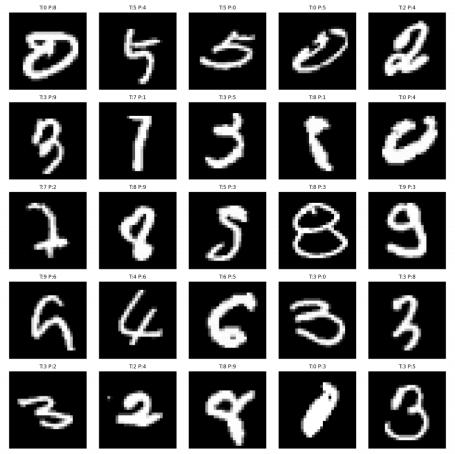 T:0 P:8 T:5 P:4 T:5 P:0 T:0 P:5 T:2 P:4
0 5 5 0 2
T:3 P:9 T:7 P:1 T:3 P:5 T:8 P:1 T:0 P:4
3 7 3 8 0
T:7 P:2 T:8 P:9 T:5 P:3 T:8 P:3 T:9 P:3
7 8 5 8 9
T:9 P:6 T:4 P:6 T:6 P:5 T:3 P:0 T:3 P:8
9 4 6 3 3
T:3 P:2 T:2 P:4 T:8 P:9 T:0 P:3 T:3 P:5
3 2 8 0 3